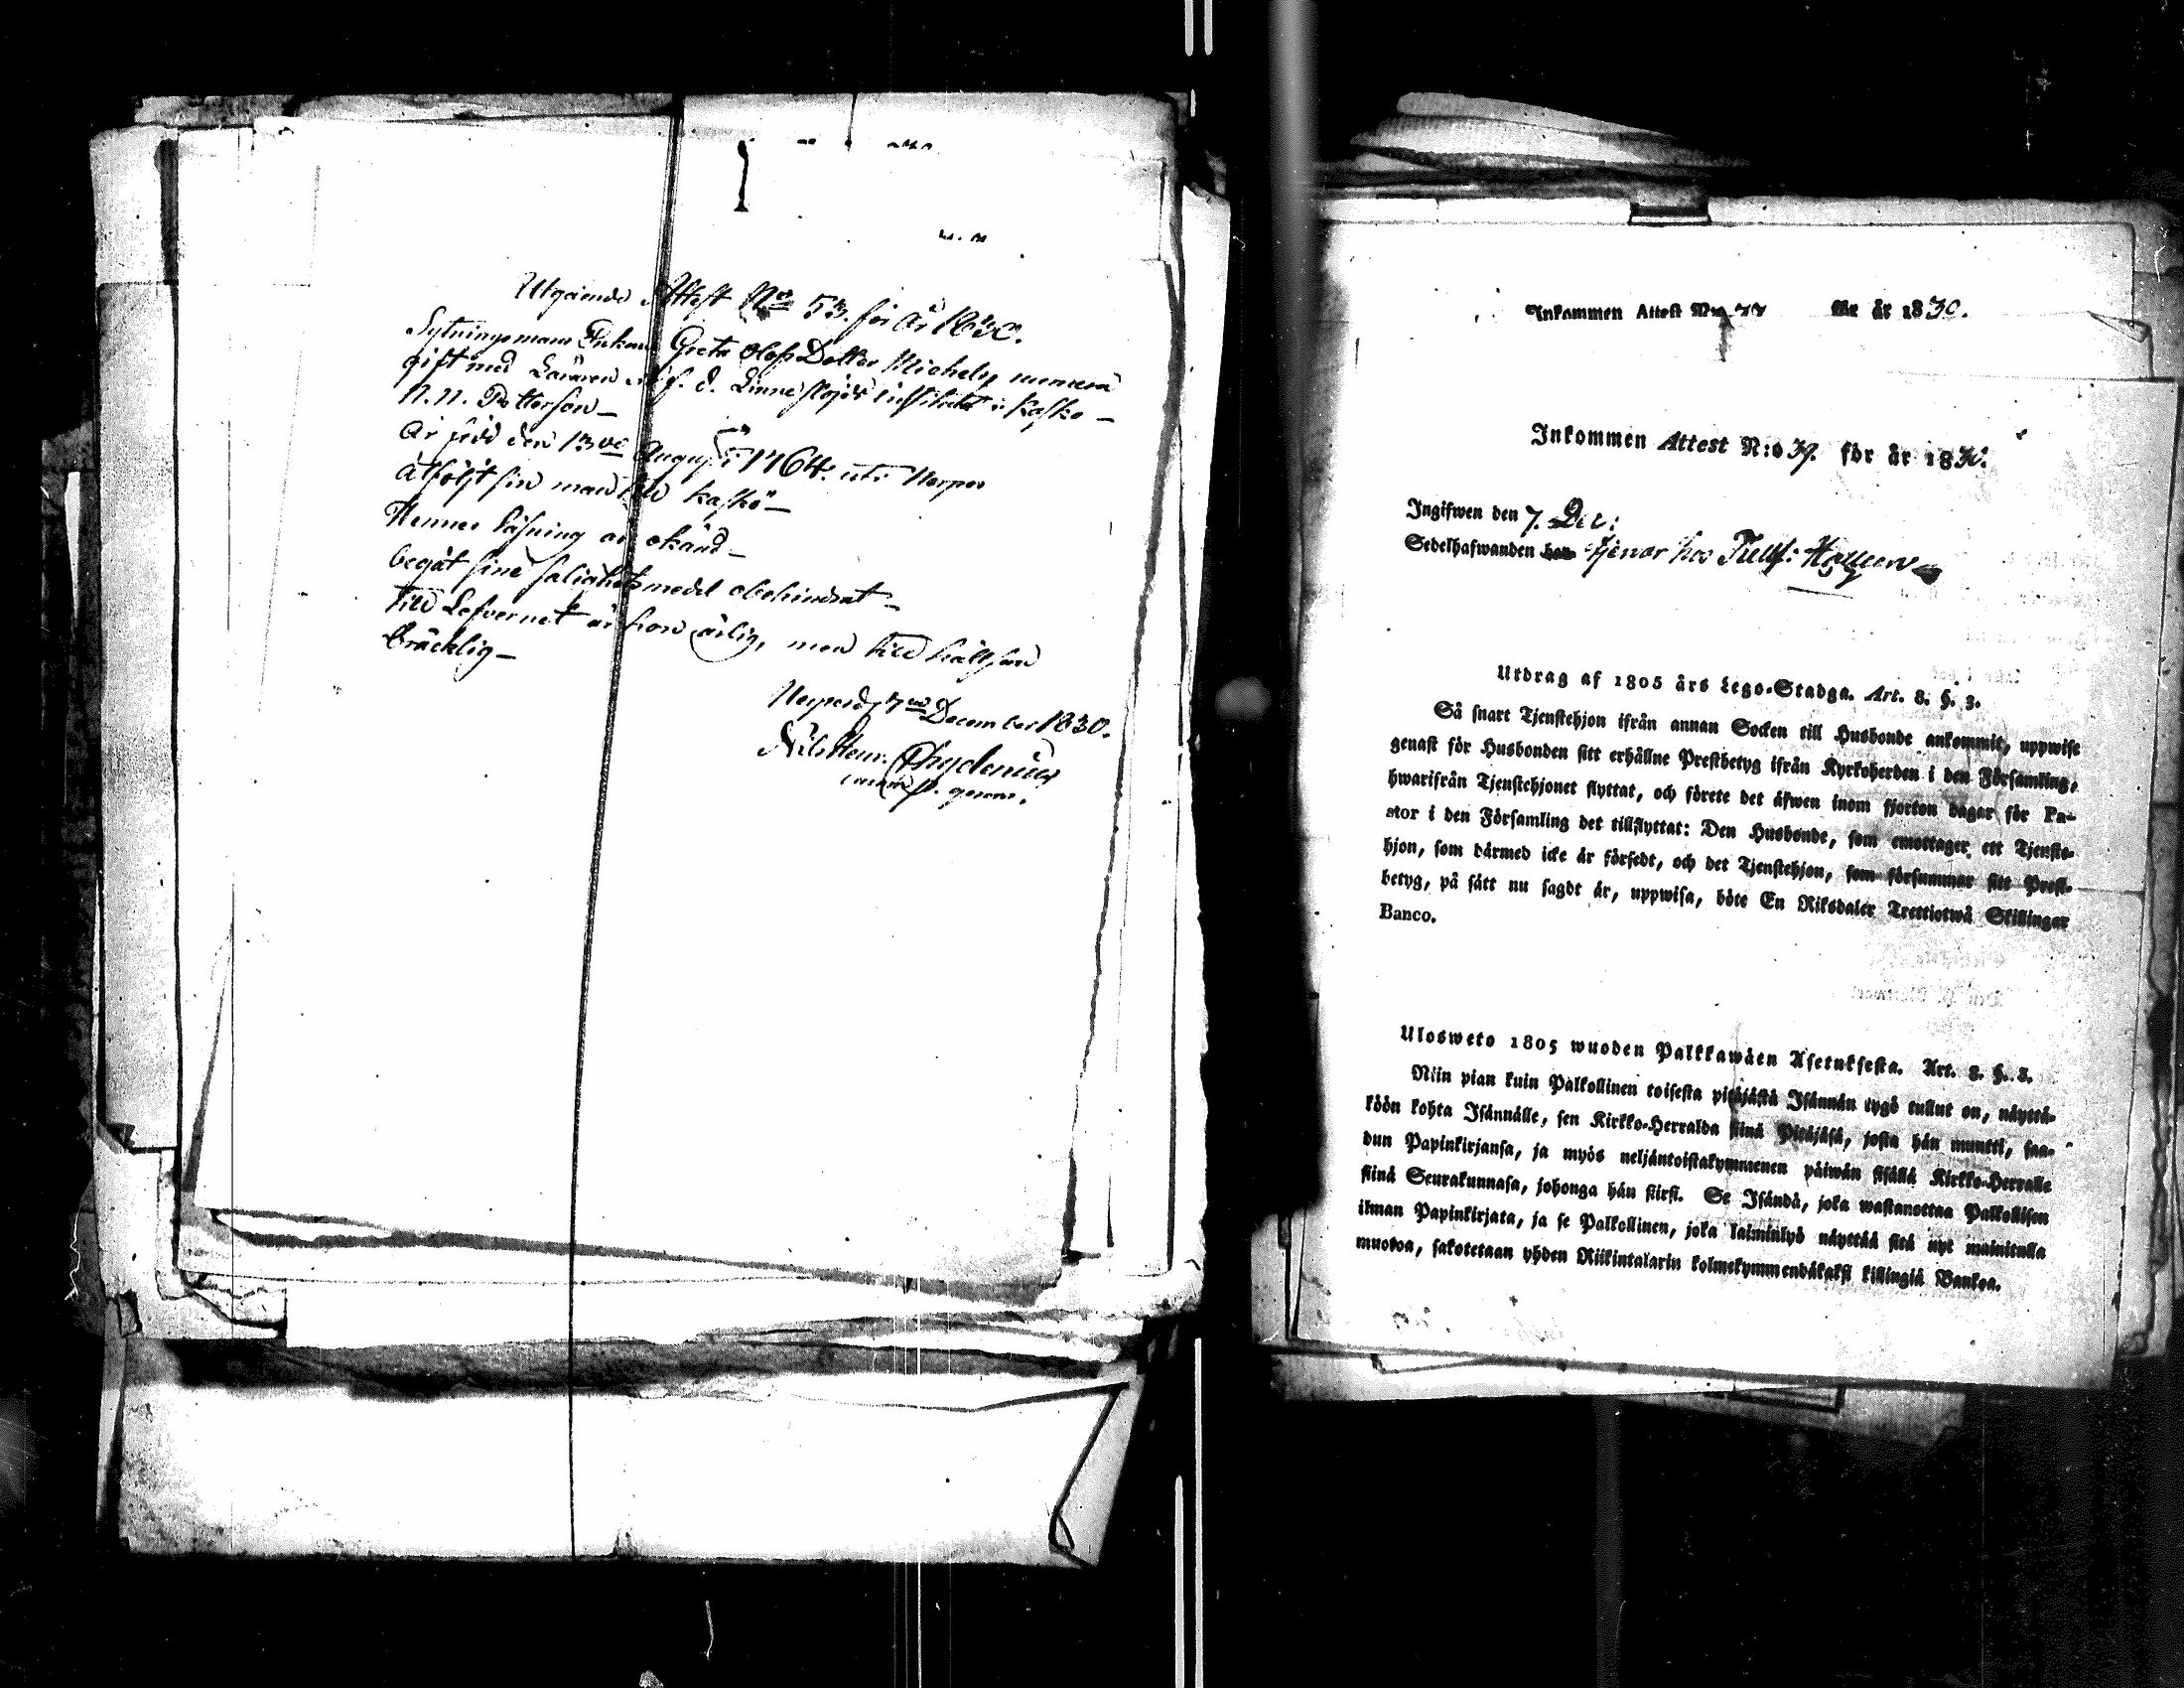 Utgående Attest No 53. för år 1830.
Sytningsmans Enkan Greta Olofs Dotter Michels numera
gift med Läraren d. Linne slöjds institutet i Kaskö –
N. N. Petterson –
är född den 13de Augusti 1764. uti Nerpes
åtföljt sin man till Kaskö –
Hennes läsning är okänd –
begåt sine salighetsmedel obehindrat –
till Lefvernet är hon ärlig, men till hälsan
bräcklig –
Nerpes d. 7de December 1830.
Nils Henr. Chydenius
p. gerens.
Inkommen Attest N:o för år 1830.
Inkommen Attest N:o 39. för år 1830.
Ingifwen den 7. Dec:
Sedelhafwanden tjenar hos
Utdrag af 1805 års Lego-Stadga. Art. 8. §. 3.
Så snart Tjenstehjon ifrån annan Socken till Husbonde ankommit, uppwise
genast för Husbonden sitt erhållne Prestbetyg ifrån Kyrkoherden i den Församling,
hwarifrån Tjenstehjonet flyttat, och förete det äfwen inom fjorton dagar för Pa-
stor i den Församling det tillflyttat: Den Husbonde, som emottager ett Tjenste-
hjon, som därmed icke är försedt, och det Tjenstehjon, som försummar sitt Prest-
betyg, på sätt nu sagdt är, uppwisa, böte En Riksdaler Trettiotwå Skillingar
Banco.
Ulosweto 1805 wuoden Palkkawäen Asetuksesta. Art. 8. §. 3.
Niin pian kuin Palkollinen toisesta pitäjästä Isännän tygö tullut on, näyttä-
köön kohta Isännälle, sen Kirkko-Herralda siinä Pitäjäsä, josta hän muutti, saa-
dun Papinkirjansa, ja myös neljäntoistakymmenen päiwän sisällä Kirkko-Herralle
siinä Seurakunnasa, johonga hän siirsi. Se Isändä, joka wastanottaa Palkollisen
ilman Papinkirjata, ja se Palkollinen, joka laiminlyö näyttää sitä nyt mainitulla
muotoa, sakotetaan yhden Riikintalarin kolmekymmendäkaksi killingiä Bankoa.